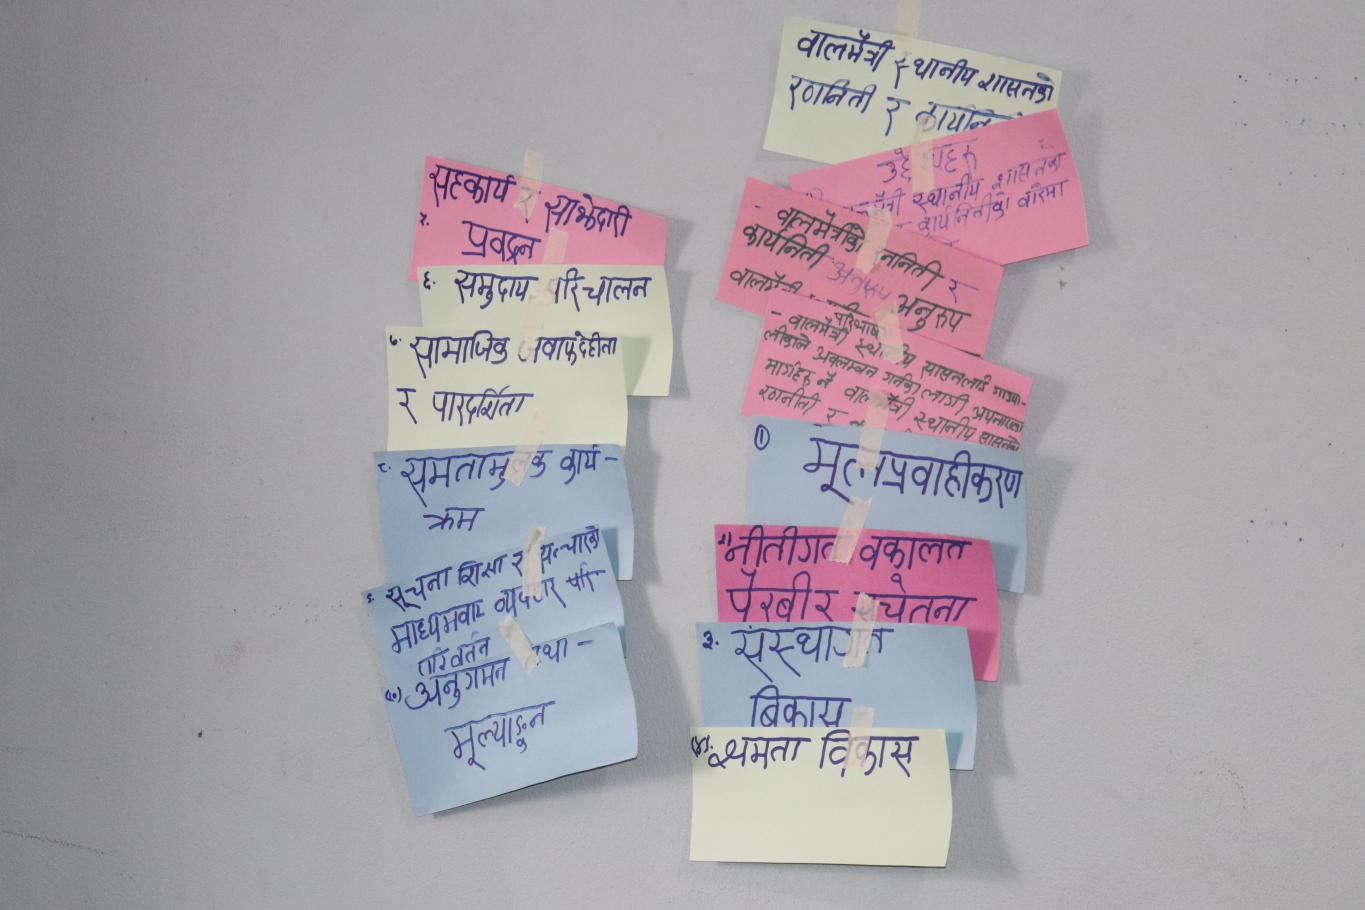 वालमैत्री स्थानीय शासनको
रणनिती र कार्यनिती
उद्देश्यहरु
स्थानीय शासनको
कार्यनितीको वारेमा
- वालमैत्रीको रननिती र
कार्यनिती अनुरुप अनुरुप
वालमैत्री
परिभाषा
- वालमैत्री स्थानीय सासनलाई
लीकाले अवलम्वन गर्नका लागी अपनाएका
मार्गहरु नै वालमैत्री स्थानीय सासनको
रणनीती र
① मूलप्रवाहीकरण
नीतीगत वकालत
पैरबी र सचेतना
३. संस्थागत
बिकास
(४). क्षमता विकास
सहकार्य र साझेदारी
प्रवद्वन
६. समुदाय परिचालन
७. सामाजिक जवाफदेहीता
र पारदर्शिता
८. समतामुलक कार्य-
क्रम
९. सूचना शिक्षा र सञ्चारको
माध्यमवाट व्यवहार परि
परिवर्तन
(१०) अनुगमन तथा -
मूल्याङ्कन